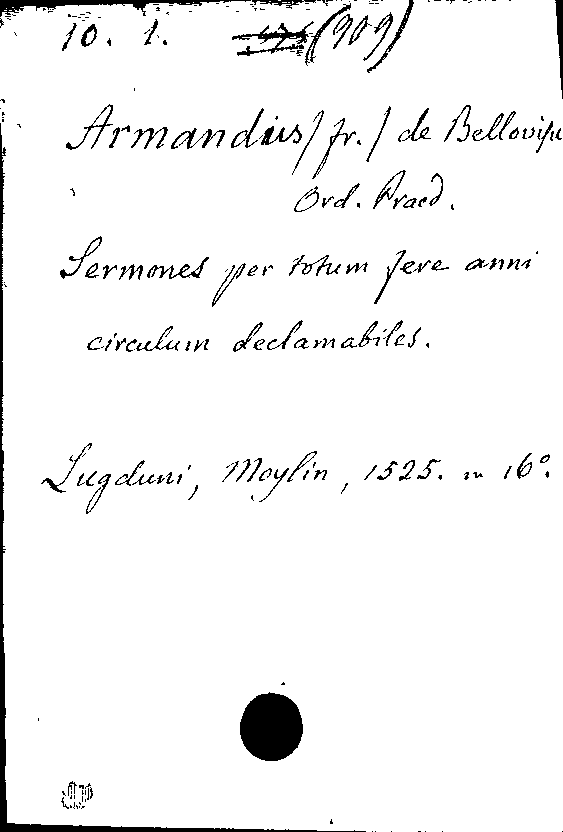 10. 1. (909)
Armandus / fr. / de Bellovisu
Ord. Praed.
Sermones per totum fere anni
circulum declamabiles.
Lugduni, Moylin, 1525. in 16°.